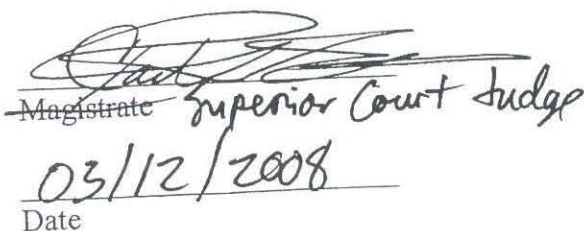 Magistrate Superior Court Judge
03/12/2008
Date